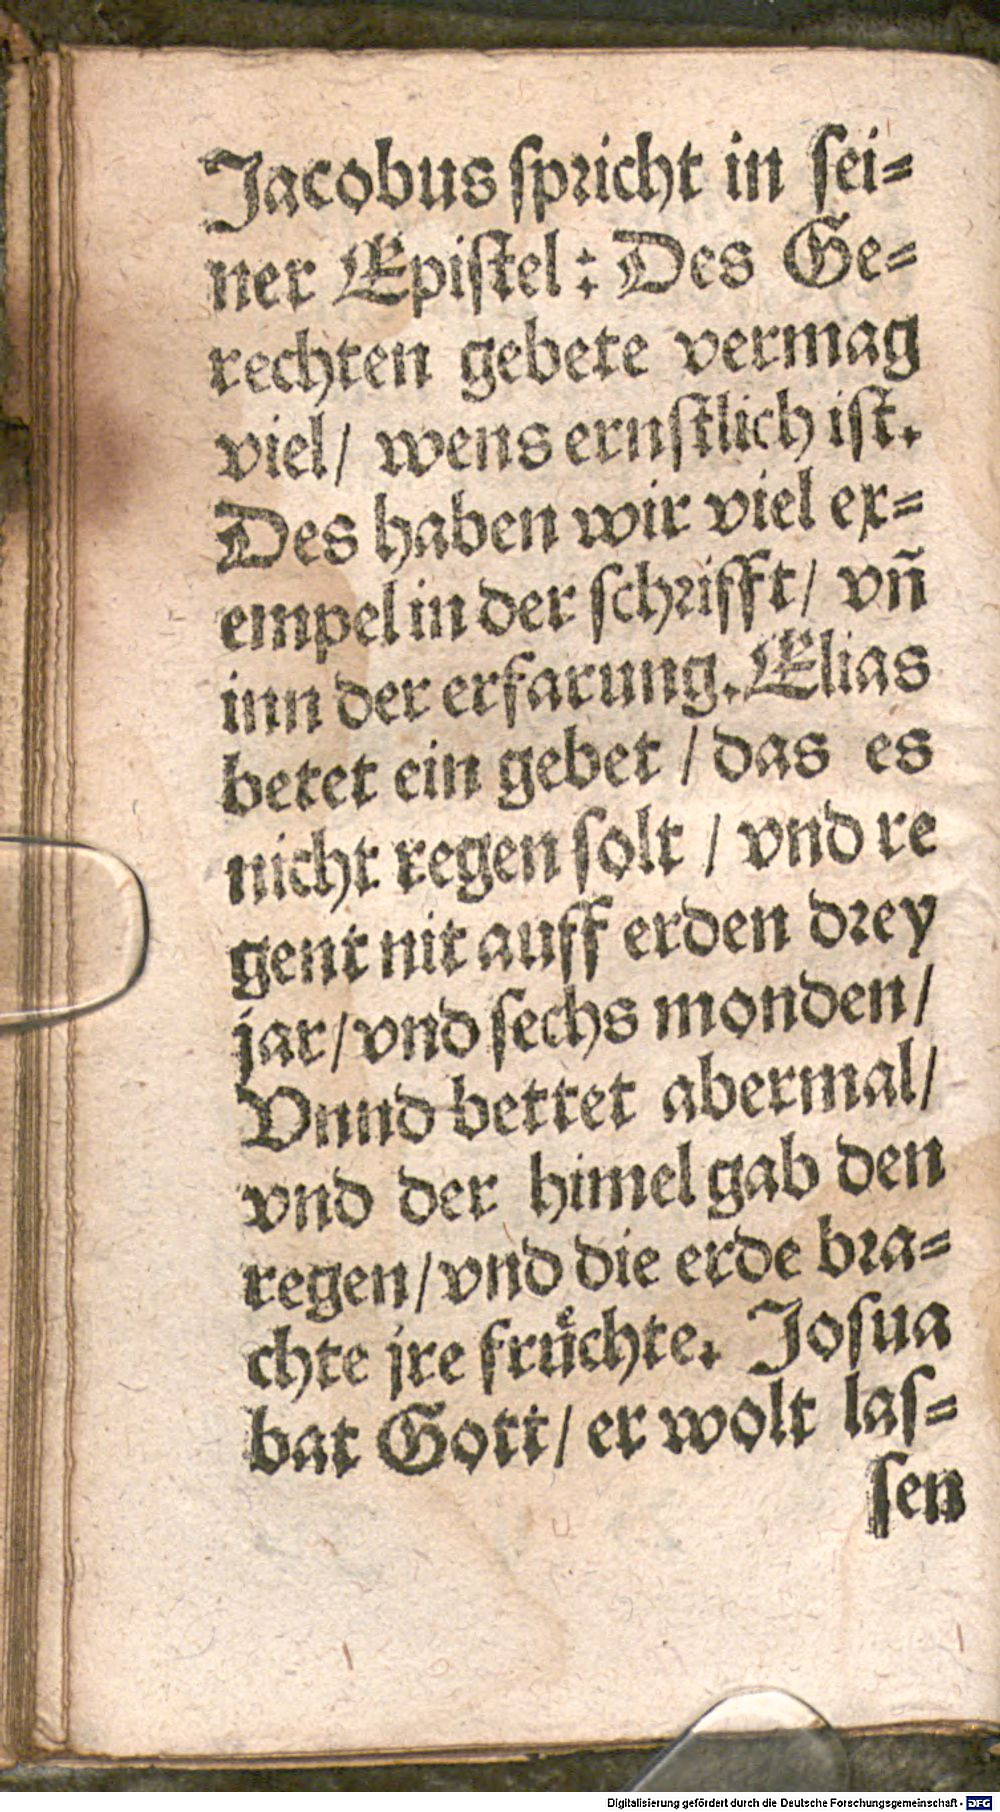 Jacobus spricht in sei=
ner Epistel: Des Ge=
rechten gebete vermag
viel/ wens ernstlich ist.
Des haben wir viel ex=
empel in der schrifft/ vñ
inn der erfarung. Elias
betet ein gebet / das es
nicht regen solt / vnd re
gent nit auff erden drey
jar/ vnd sechs monden/
Vnnd bettet abermal/
vnd der himel gab den
regen/ vnd die erde bra=
chte jre fruͤchte. Josua
bat Gott/ er wolt las=
sen
Digitalisierung gefördert durch die Deutsche Forschungsgemeinschaft - DFG